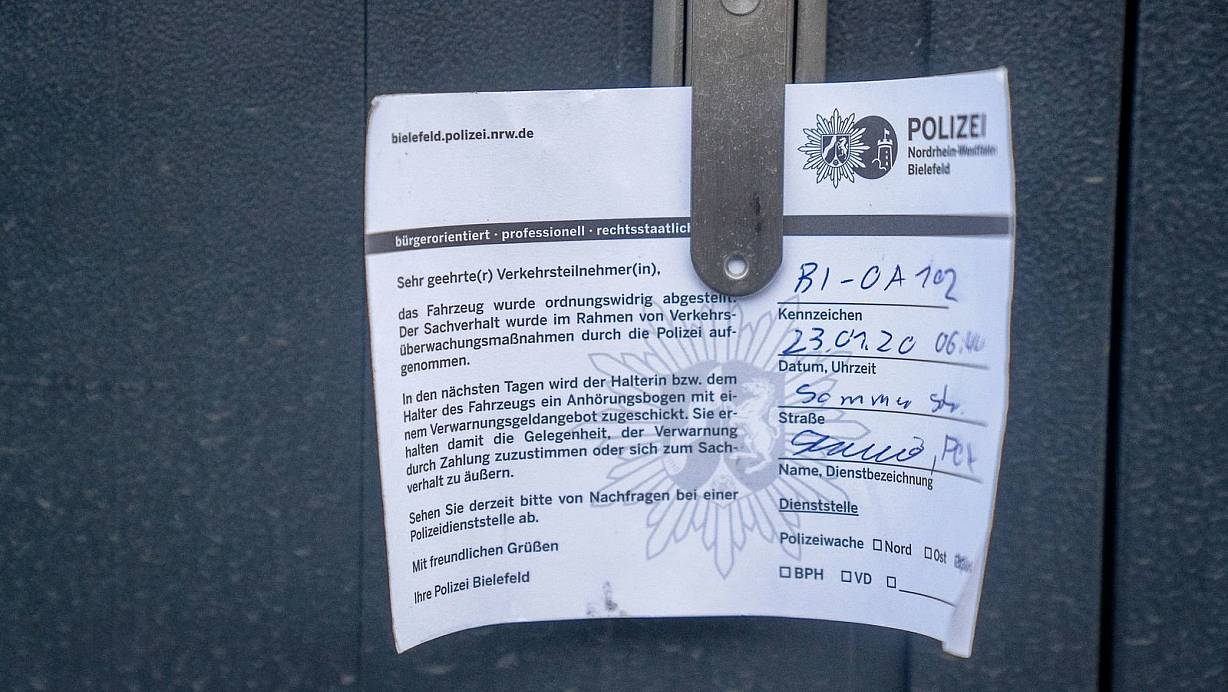 bielefeld.polizei.nrw.de
POLIZEI
Nordrhein-Westfalen
Bielefeld
bürgerorientiert · professionell · rechtsstaatlich
Sehr geehrte(r) Verkehrsteilnehmer(in),
das Fahrzeug wurde ordnungswidrig abgestellt.
Der Sachverhalt wurde im Rahmen von Verkehrs-
überwachungsmaßnahmen durch die Polizei auf-
genommen.
In den nächsten Tagen wird der Halterin bzw. dem
Halter des Fahrzeugs ein Anhörungsbogen mit ei-
nem Verwarnungsgeldangebot zugeschickt. Sie er-
halten damit die Gelegenheit, der Verwarnung
durch Zahlung zuzustimmen oder sich zum Sach-
verhalt zu äußern.
Sehen Sie derzeit bitte von Nachfragen bei einer
Polizeidienststelle ab.
Mit freundlichen Grüßen
Ihre Polizei Bielefeld
BI-OA 102
Kennzeichen
23.01.20
Datum, Uhrzeit
Sommer str.
Straße
Name, Dienstbezeichnung
Dienststelle
Polizeiwache Nord Ost
BPH VD